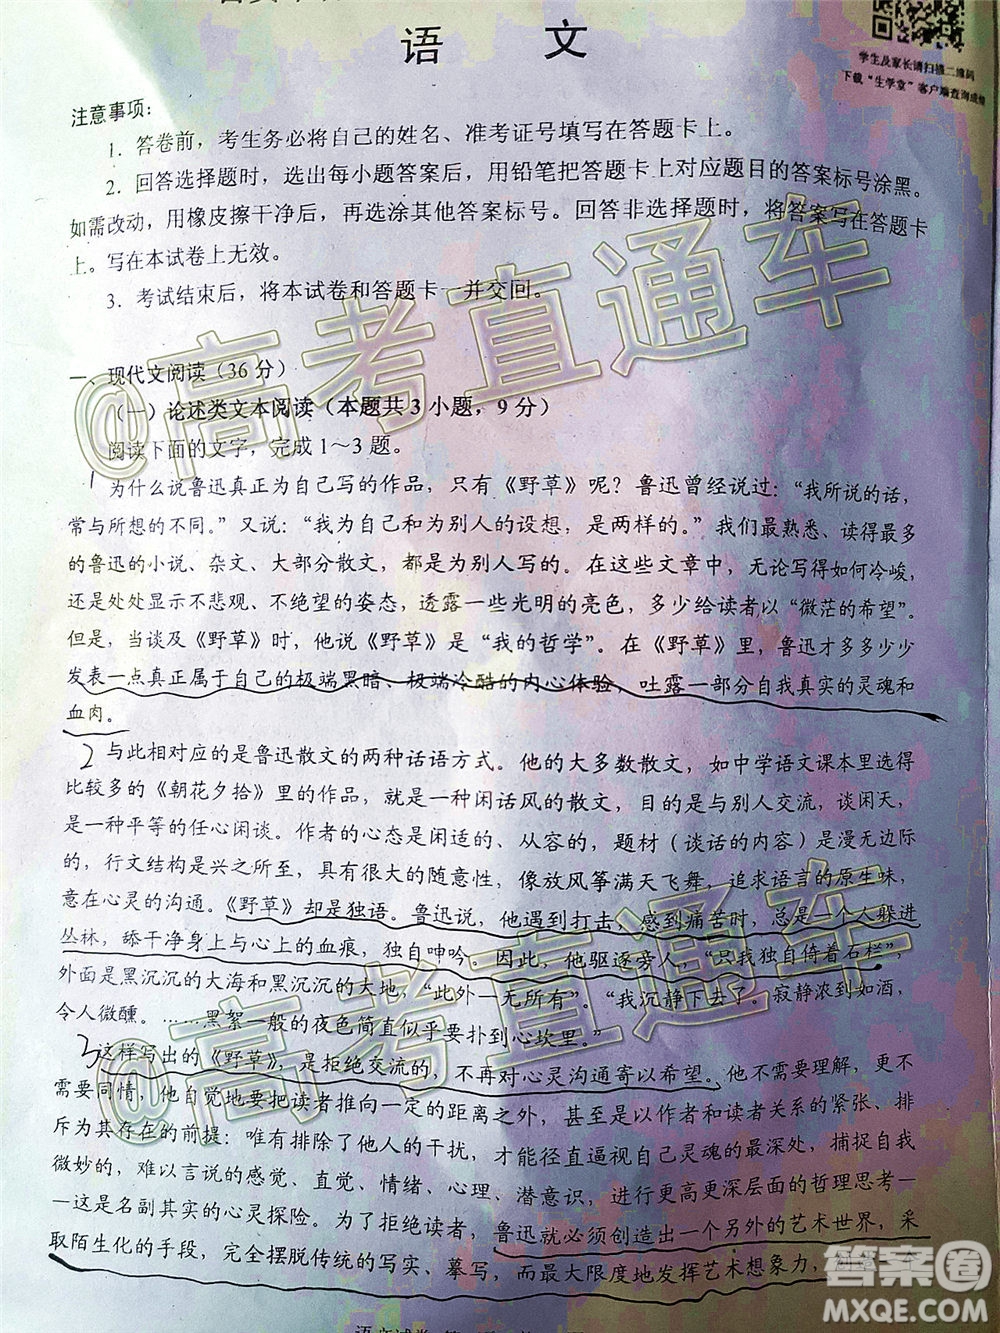 语 文
学生及家长请扫描二维码
下载“生学堂”客户端查询成绩
注意事项：
1．答卷前，考生务必将自己的姓名、准考证号填写在答题卡上。
2．回答选择题时，选出每小题答案后，用铅笔把答题卡上对应题目的答案标号涂黑。
如需改动，用橡皮擦干净后，再选涂其他答案标号。回答非选择题时，将答案写在答题卡
上。写在本试卷上无效。
3．考试结束后，将本试卷和答题卡一并交回。
@高考直通车
一、现代文阅读（36 分）
（一）论述类文本阅读（本题共 3 小题，9 分）
阅读下面的文字，完成 1～3 题。
1 为什么说鲁迅真正为自己写的作品，只有《野草》呢？鲁迅曾经说过：“我所说的话，
常与所想的不同。”又说：“我为自己和为别人的设想，是两样的。”我们最熟悉、读得最多
的鲁迅的小说、杂文、大部分散文，都是为别人写的。在这些文章中，无论写得如何冷峻，
还是处处显示不悲观、不绝望的姿态，透露一些光明的亮色，多少给读者以“微茫的希望”。
但是，当谈及《野草》时，他说《野草》是“我的哲学”。在《野草》里，鲁迅才多多少少
发表一点真正属于自己的极端黑暗、极端冷酷的内心体验，吐露一部分自我真实的灵魂和
血肉。
2 与此相对应的是鲁迅散文的两种话语方式。他的大多数散文，如中学语文课本里选得
比较多的《朝花夕拾》里的作品，就是一种闲话风的散文，目的是与别人交流，谈闲天，
是一种平等的任心闲谈。作者的心态是闲适的、从容的，题材（谈话的内容）是漫无边际
的，行文结构是兴之所至，具有很大的随意性，像放风筝满天飞舞，追求语言的原生味，
意在心灵的沟通。《野草》却是独语。鲁迅说，他遇到打击，感到痛苦时，总是一个人躲进
丛林，舔干净身上与心上的血痕，独自呻吟。因此，他驱逐旁人，“只我独自倚着石栏”，
外面是黑沉沉的大海和黑沉沉的大地，“此外一无所有”。“我沉静下去了。寂静浓到如酒，
令人微醺。……黑絮一般的夜色简直似乎要扑到心坎里。”
@高考直通车
3 这样写出的《野草》，是拒绝交流的，不再对心灵沟通寄以希望。他不需要理解，更不
需要同情，他自觉地要把读者推向一定的距离之外，甚至是以作者和读者关系的紧张、排
斥为其存在的前提：唯有排除了他人的干扰，才能径直逼视自己灵魂的最深处，捕捉自我
微妙的，难以言说的感觉、直觉、情绪、心理、潜意识，进行更高更深层面的哲理思考—
—这是名副其实的心灵探险。为了拒绝读者，鲁迅就必须创造出一个另外的艺术世界，采
取陌生化的手段，完全摆脱传统的写实、摹写，而最大限度地发挥艺术想象力，
答案圈
MXQE.COM